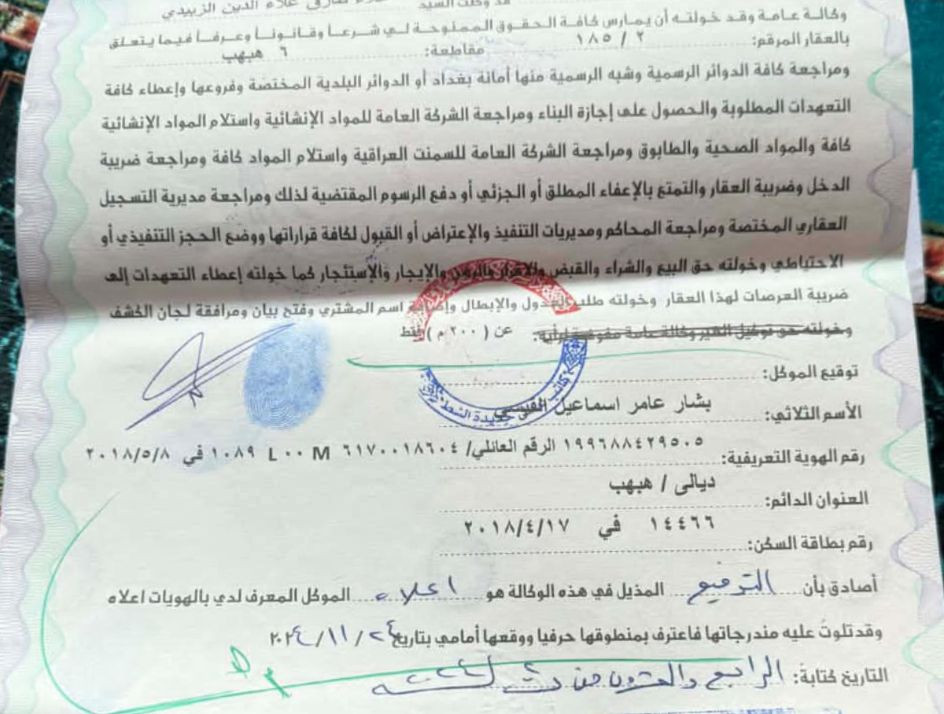 علاء الدين الزبيدي
وكالة عامة وقد خولته أن يمارس كافة الحقوق الممنوحة لي شرعاً وقانوناً وعرفاً فيما يتعلق
بالعقار المرقم: ٢ / ١٨٥ مقاطعة: ٦ هبهب
ومراجعة كافة الدوائر الرسمية وشبه الرسمية منها أمانة بغداد أو الدوائر البلدية المختصة وفروعها وإعطاء كافة
التعهدات المطلوبة والحصول على إجازة البناء ومراجعة الشركة العامة للمواد الإنشائية واستلام المواد الإنشائية
كافة والمواد الصحية والطابوق ومراجعة الشركة العامة للسمنت العراقية واستلام المواد كافة ومراجعة ضريبة
الدخل وضريبة العقار والتمتع بالإعفاء المطلق أو الجزئي أو دفع الرسوم المقتضية لذلك ومراجعة مديرية التسجيل
العقاري المختصة ومراجعة المحاكم ومديريات التنفيذ والإعتراض أو القبول لكافة قراراتها ووضع الحجز التنفيذي أو
الاحتياطي وخولته حق البيع والشراء والقبض والإقرار بالرهن والإيجار والإستئجار كما خولته إعطاء التعهدات إلى
ضريبة العرصات لهذا العقار وخولته طلب العدول والإبطال وإعطاء اسم المشتري وفتح بيان ومرافقة لجان الكشف
وخولته حق توكيل الغير وكالة عامة عن ( ٢٠٠ م ) فقط
توقيع الموكل:
الأسم الثلاثي: بشار عامر اسماعيل القيسي
كاتب جديدة الشط
رقم الهوية التعريفية: ١٩٩٦٨٨٤٢٩٥٠٥ الرقم العائلي/ ١٠٨٩ L٠٠ M ٦١٧٠٠١٨٦٠٤ في ٢٠١٨/٥/٨
العنوان الدائم: ديالى / هبهب
رقم بطاقة السكن: ١٤٤٦٦ في ٢٠١٨/٤/١٧
أصادق بأن التوقيع المذيل في هذه الوكالة هو اعلاه الموكل المعرف لدي بالهويات اعلاه
وقد تلوت عليه مندرجاتها فاعترف بمنطوقها حرفيا ووقعها أمامي بتاريخ ٢٠٢٤/١١/٢٤
التاريخ كتابة: الرابع والعشرون من